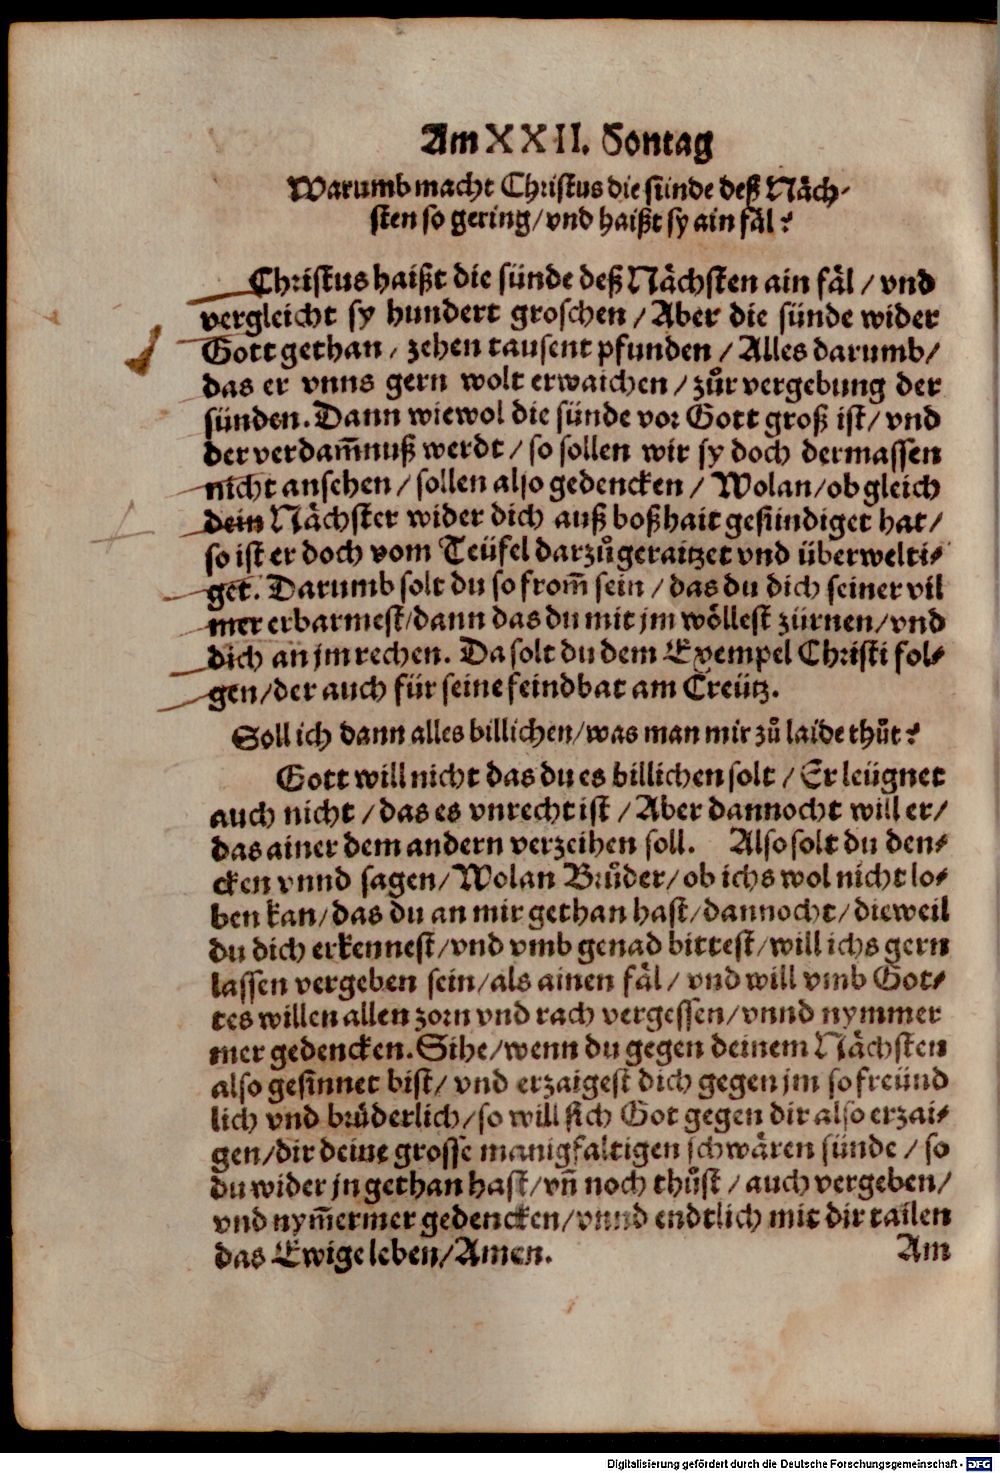 Am XXII. Sontag
Warumb macht Christus die sünde deß Näch-
sten so gering/ vnd haißt sy ain fäl?
Christus haißt die sünde deß Nächsten ain fäl / vnd
vergleicht sy hundert groschen / Aber die sünde wider
Gott gethan / zehen tausent pfunden / Alles darumb/
das er vnns gern wolt erwaichen / zuͦr vergebung der
sünden. Dann wiewol die sünde vor Gott groß ist/ vnd
der verdam̄nuß werdt / so sollen wir sy doch dermassen
nicht ansehen / sollen also gedencken / Wolan/ ob gleich
dein Nächster wider dich auß boßhait gesündiget hat/
so ist er doch vom Teüfel darzuͦ geraitzet vnd überwelti-
get. Darumb solt du so from̄ sein / das du dich seiner vil
mer erbarmest/ dann das du mit jm wöllest zürnen/ vnd
dich an jm rechen. Da solt du dem Exempel Christi fol-
gen/ der auch für seine feind bat am Creütz.
Soll ich dann alles billichen/ was man mir zuͦ laide thuͦt?
Gott will nicht das du es billichen solt / Er leügnet
auch nicht / das es vnrecht ist / Aber dannocht will er/
das ainer dem andern verzeihen soll. Also solt du den-
cken vnnd sagen/ Wolan Bruͦder/ ob ichs wol nicht lo-
ben kan/ das du an mir gethan hast/ dannocht/ dieweil
du dich erkennest/ vnd vmb genad bittest/ will ichs gern
lassen vergeben sein/ als ainen fäl / vnd will vmb Got-
tes willen allen zorn vnd rach vergessen/ vnnd nymmer
mer gedencken. Sihe/ wenn du gegen deinem Nächsten
also gesinnet bist/ vnd erzaigest dich gegen jm so freünd
lich vnd bruͦderlich/ so will sich Got gegen dir also erzai-
gen/ dir deine grosse manigfaltigen schwären sünde / so
du wider jn gethan hast/ vn̄ noch thuͦst / auch vergeben/
vnd nym̄ermer gedencken/ vnnd endtlich mit dir tailen
das Ewige leben/ Amen. Am
Digitalisierung gefördert durch die Deutsche Forschungsgemeinschaft - DFG